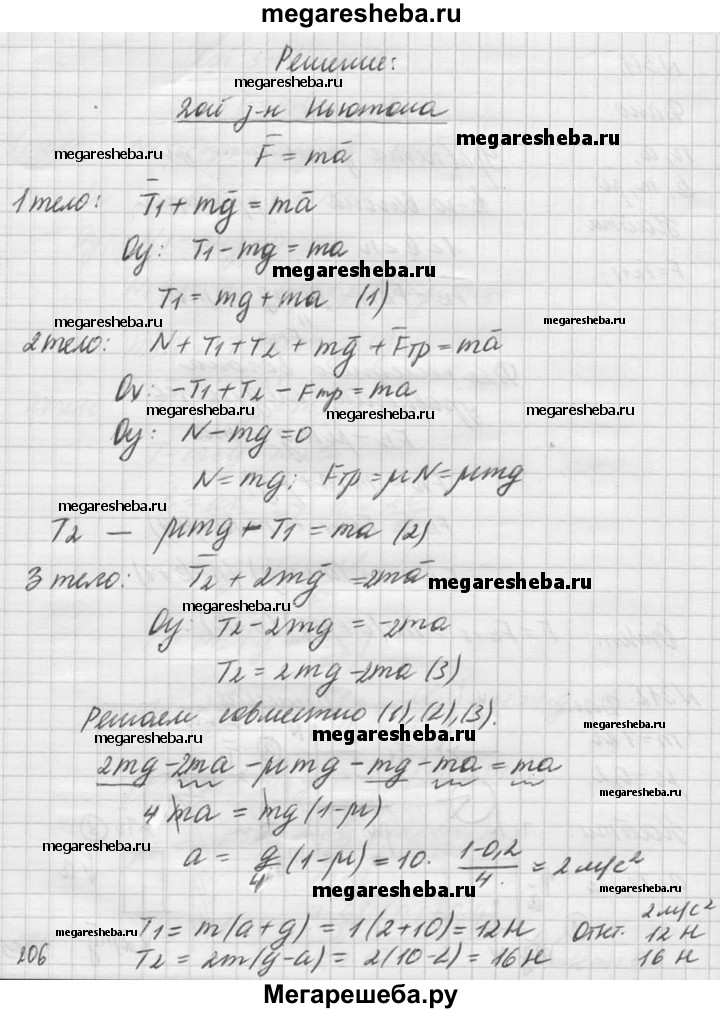 megaresheba.ru
Решение:
megaresheba.ru
2ой з-н Ньютона
megaresheba.ru
megaresheba.ru
F̄ = mā
megaresheba.ru
1 тело: T̄1 + mḡ = mā
Oy: T1 - mg = ma
megaresheba.ru
T1 = mg + ma (1)
megaresheba.ru
2 тело: N + T1 + T2 + mḡ + F̄тр = mā
Ox: -T1 + T2 - Fтр = ma
megaresheba.ru megaresheba.ru megaresheba.ru
Oy: N - mg = 0
N = mg; Fтр = μN = μmg
megaresheba.ru
T2 - μmg - T1 = ma (2)
3 тело: T̄2 + 2mḡ = 2mā
megaresheba.ru
Oy: T2 - 2mg = -2ma
T2 = 2mg - 2ma (3)
Решаем совместно (1), (2), (3).
megaresheba.ru
megaresheba.ru
megaresheba.ru
2mg - 2ma - μmg - mg - ma = ma
megaresheba.ru
4 ma = mg (1-μ)
megaresheba.ru
a = g/4 (1-μ) = 10 · (1-0,2)/4 = 2 м/с²
megaresheba.ru
megaresheba.ru
2 м/с²
T1 = m(a+g) = 1(2+10) = 12 Н Отв. 12 Н
megaresheba.ru
megaresheba.ru
megaresheba.ru
206 T2 = 2m(g-a) = 2(10-2) = 16 Н 16 Н
Мегарешеба.ру